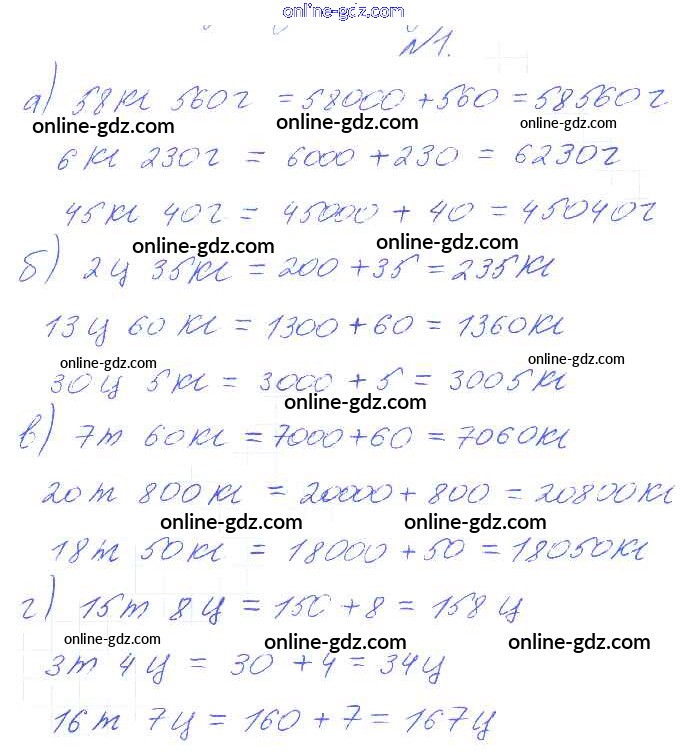 online-gdz.com
№1.
а) 58кг 560г = 58000 + 560 = 58560г.
online-gdz.com online-gdz.com online-gdz.com
6 кг 230г = 6000 + 230 = 6230г
45кг 40г = 45000 + 40 = 45040г
online-gdz.com online-gdz.com
б) 2ц 35кг = 200 + 35 = 235кг
13ц 60 кг = 1300 + 60 = 1360кг
online-gdz.com online-gdz.com
30ц 5кг = 3000 + 5 = 3005кг
online-gdz.com
в) 7т 60кг = 7000 + 60 = 7060кг
20т 800кг = 20000 + 800 = 20800кг
online-gdz.com online-gdz.com
18т 50кг = 18000 + 50 = 18050кг
г) 15т 8ц = 150 + 8 = 158ц
online-gdz.com online-gdz.com online-gdz.com
3т 4ц = 30 + 4 = 34ц
16т 7ц = 160 + 7 = 167ц